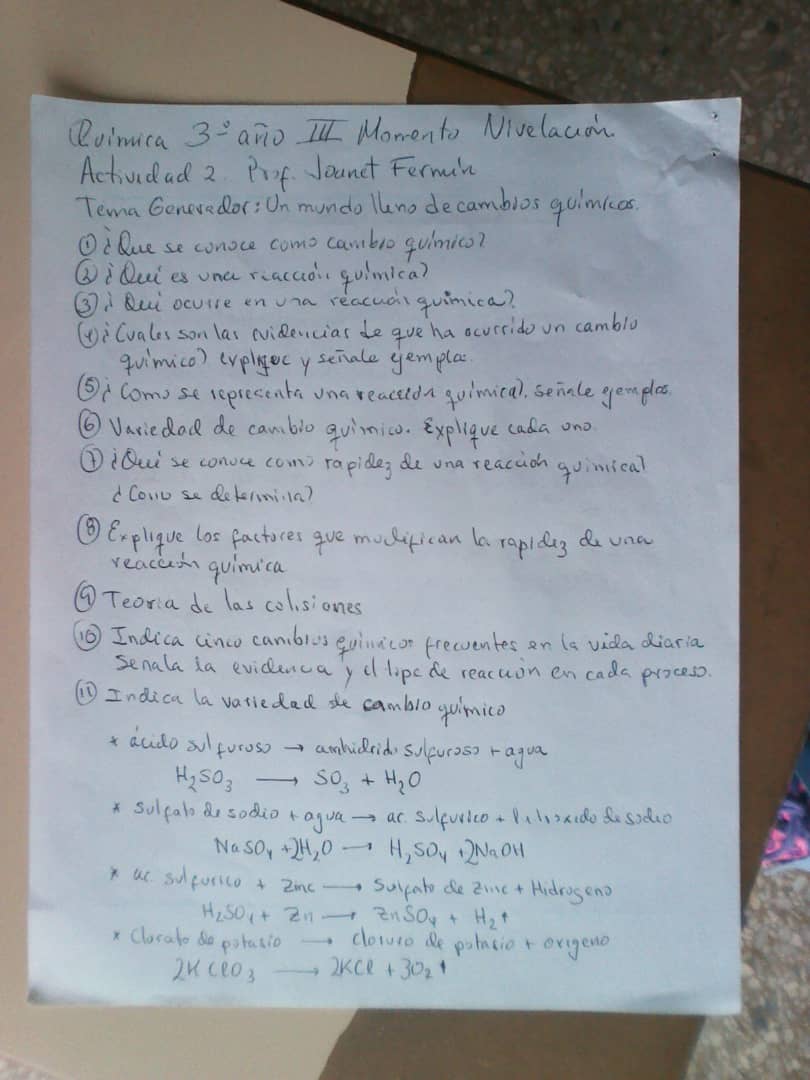 Química 3º año III Momento Nivelación.
Actividad 2. Prof. Jounet Fermín
Tema Generador: Un mundo lleno de cambios químicos.
① ¿Que se conoce como cambio químico?
② ¿Qué es una reacción química?
③ ¿Qué ocurre en una reacción química?
④ ¿Cuales son las evidencias de que ha ocurrido un cambio
químico? explique y señale ejemplo.
⑤ ¿Como se representa una reacción química?. Señale ejemplos.
⑥ Variedad de cambio químico. Explique cada uno.
⑦ ¿Qué se conoce como rapidez de una reacción química?
¿Como se determina?
⑧ Explique los factores que modifican la rapidez de una
reacción química
⑨ Teoria de las colisiones
⑩ Indica cinco cambios químicos frecuentes en la vida diaria
Senala la evidencia y el tipo de reacción en cada proceso.
⑪ Indica la variedad de cambio químico
* ácido sulfuroso → anhidrido sulfuroso + agua
H₂SO₃ → SO₃ + H₂O
* Sulfato de sodio + agua → ac. sulfurico + hidroxido de sodio
NaSO₄ + 2H₂O → H₂SO₄ + 2NaOH
* ac. sulfurico + Zinc → Sulfato de Zinc + Hidrogeno
H₂SO₄ + Zn → ZnSO₄ + H₂↑
* Clorato de potasio → cloruro de potasio + oxigeno
2KClO₃ → 2KCl + 3O₂↑